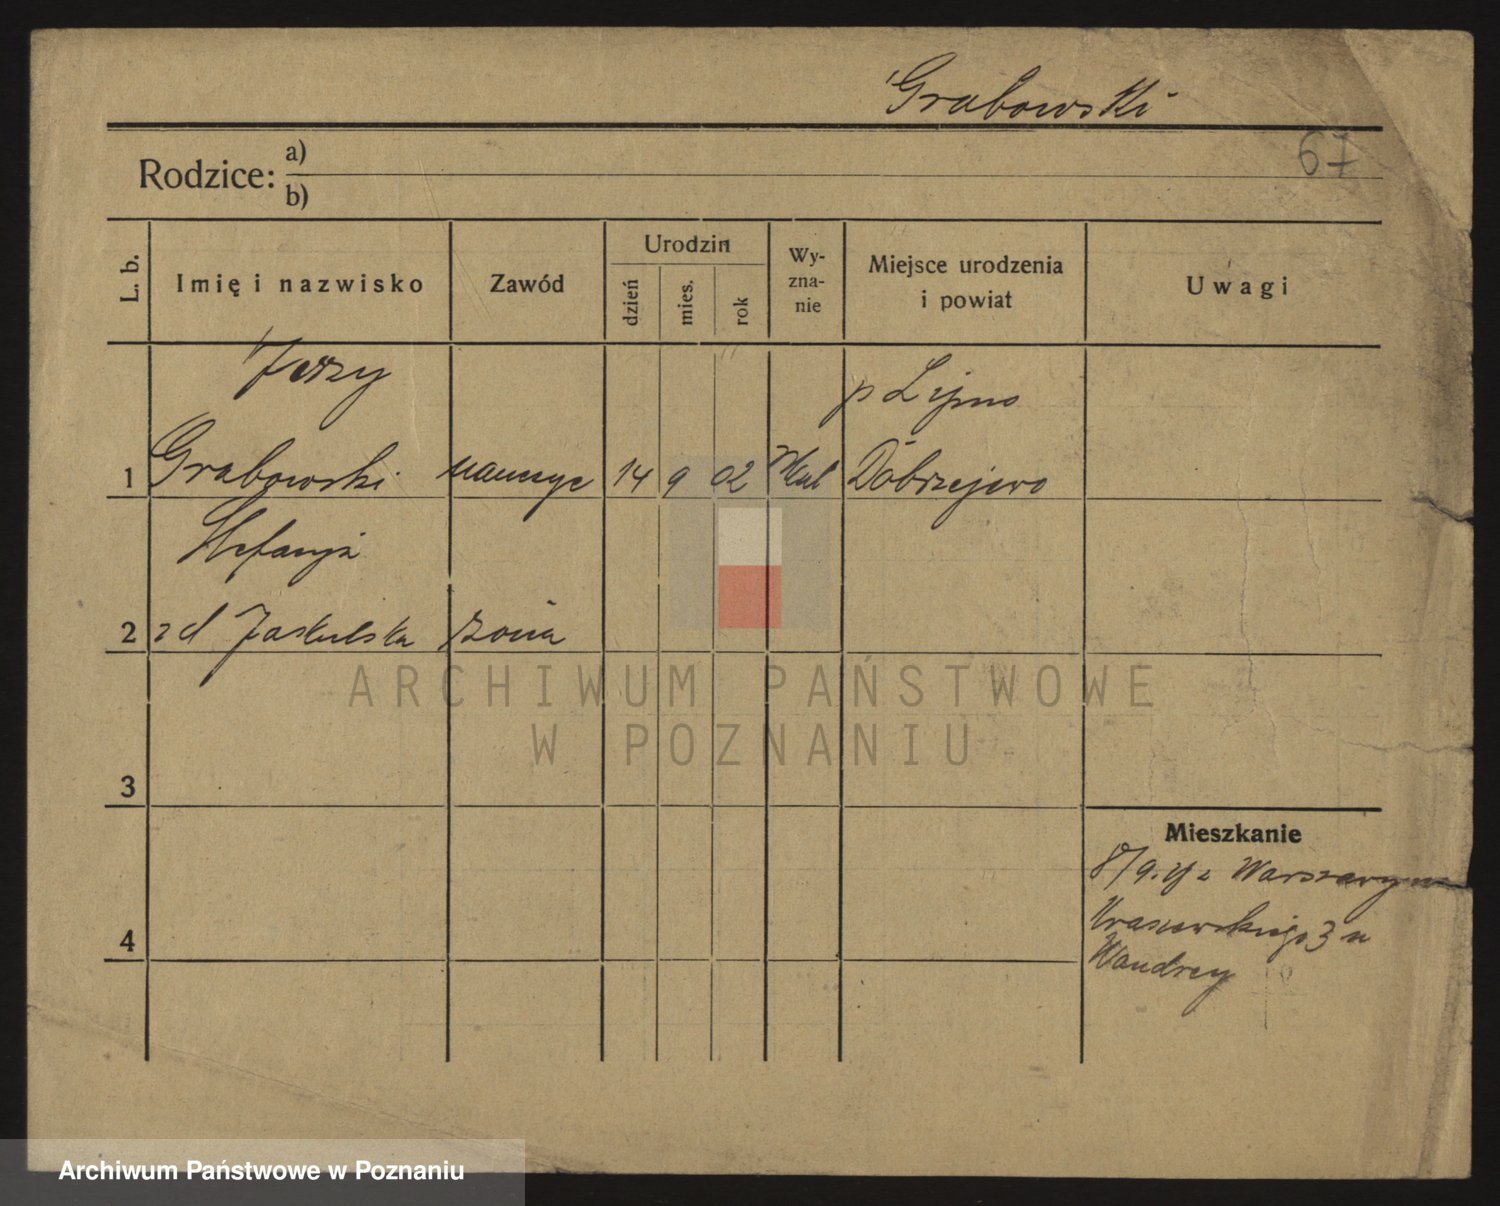 Grabowski
67
Rodzice:
a)
b)
L. b.
Imię i nazwisko
Zawód
Urodzin
dzień
mies.
rok
Wy-
zna-
nie
Miejsce urodzenia
i powiat
Uwagi
Jerzy
p Lipno
1 Grabowski nauczyc 14 9 02 Dobrzejewo
Stefanja
2 zd Jaskulska żona
3
4
Mieszkanie
8/9. z Warszawy
Kraszewskiego 3 u
Wandrey
ARCHIWUM PAŃSTWOWE
W POZNANIU
Archiwum Państwowe w Poznaniu